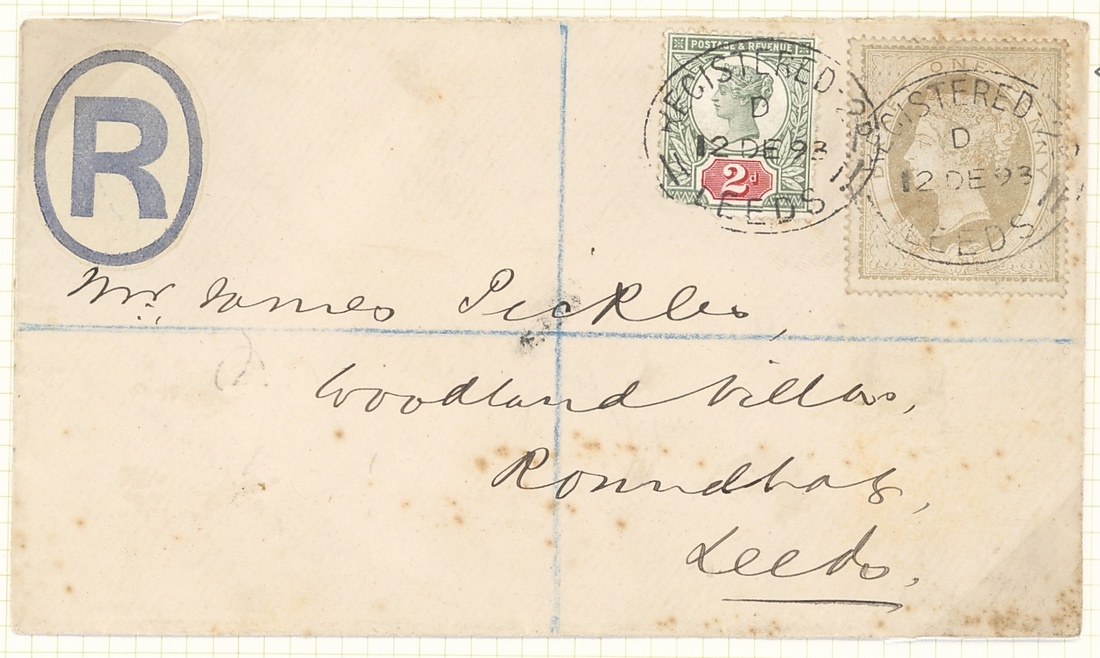 R
POSTAGE & REVENUE
2d
REGISTERED
D
12 DE 93
LEEDS
ONE PENNY
REGISTERED
D
12 DE 93
LEEDS
Mr. James Pickles,
Woodland Villas,
Roundhay,
Leeds.